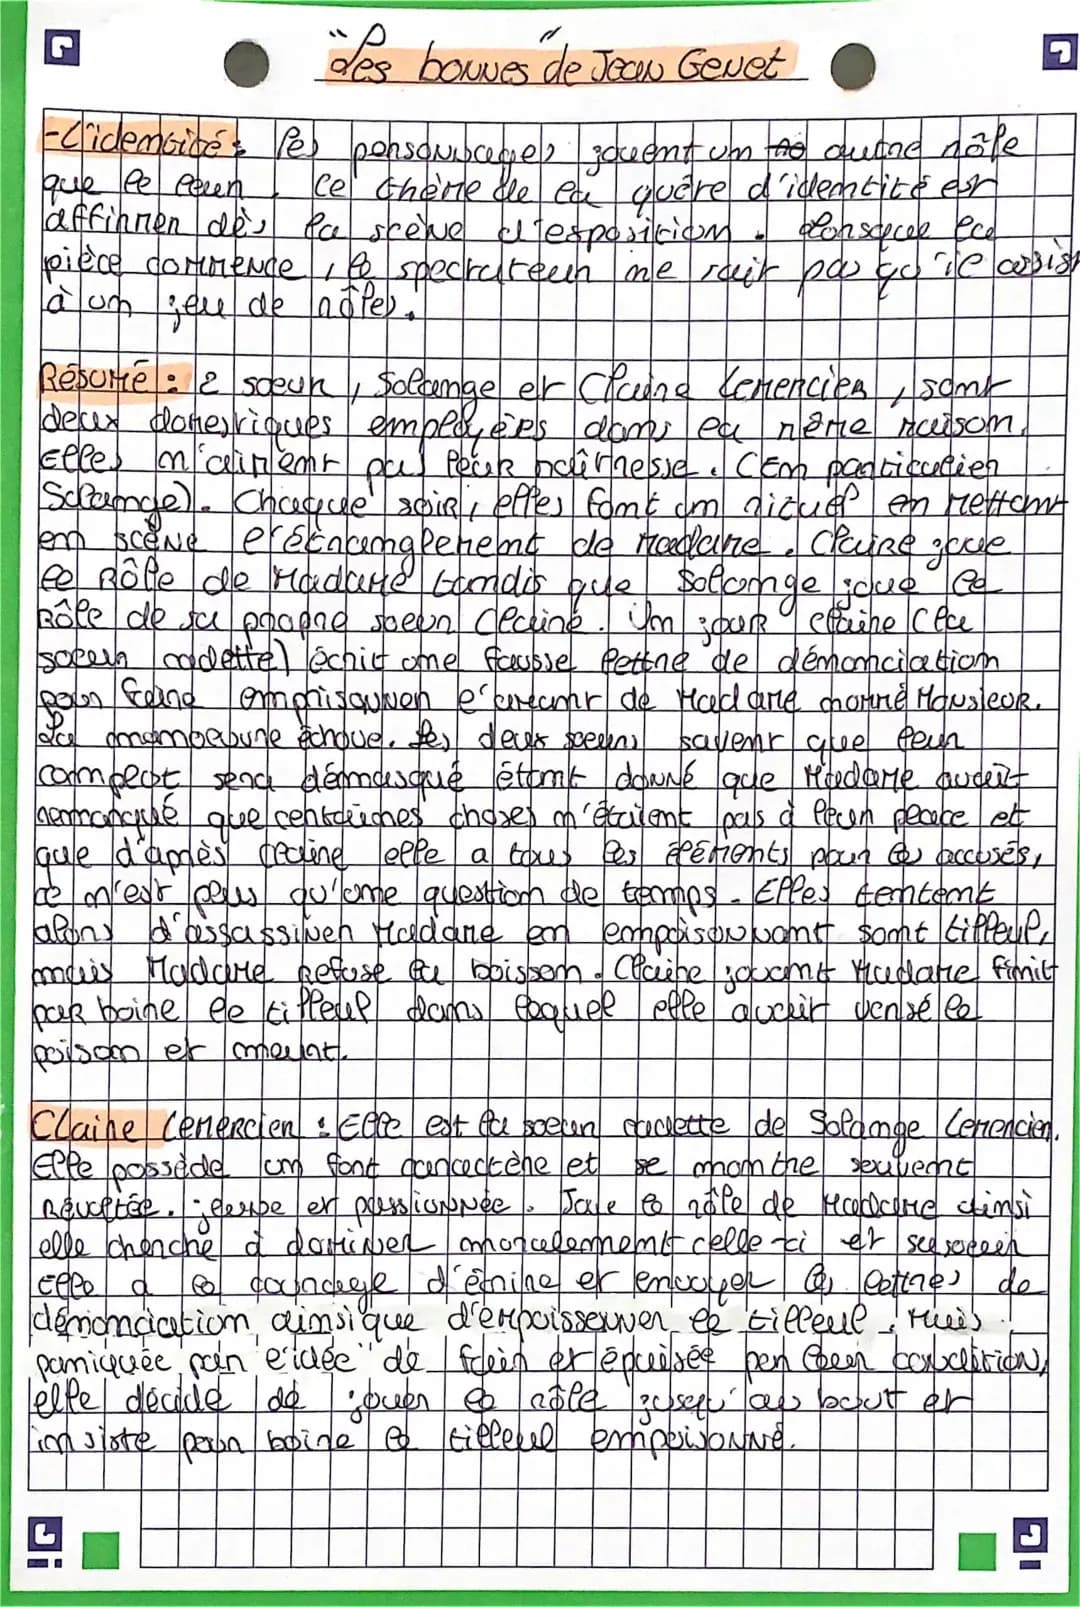 "Les bonnes" de Jean Genet
- L'identité : les personnages jouent un autre rôle
que le leur. Ce thème de la quête d'identité est
affirmer dès la scène d'exposition. Lorsque la
pièce commence, le spectateur ne sait pas qu'il assist
à un jeu de rôles.
Résumé : 2 soeur, Solange et Claire Lemercier, sont
deux domestiques employées dans la même maison.
Elles n'aiment pas leur maîtresse. (En particulier
Solange). Chaque soir, elles font un rituel en mettant
en scène l'étranglement de Madame. Claire joue
le rôle de Madame tandis que Solange joue le
rôle de sa propre soeur Claire. Un jour Claire (la
soeur cadette) écrit une fausse lettre de dénonciation
pour faire emprisonner l'amant de Madame nommé Monsieur.
La manoeuvre échoue. Les deux soeurs savent que leur
complot sera démasqué étant donné que Madame avait
remarqué que certaines choses n'étaient pas à leur place et
que d'après Claire elle a tous les éléments pour les accusés,
ce n'est plus qu'une question de temps. Elles tentent
alors d'assassiner Madame en empoisonnant sont tilleul,
mais Madame refuse la boisson. Claire jouant Madame finit
par boire le tilleul dans lequel elle avait versé le
poison et meurt.
Claire Lemercier : Elle est la soeur cadette de Solange Lemercier.
Elle possède un fort caractère et se montre souvent
révoltée, jalouse et passionnée. Joue le rôle de Madame ainsi
elle cherche à dominer moralement celle-ci et sa soeur
Elle a le courage d'écrire et envoyer les lettres de
dénonciation ainsi que d'empoissonner le tilleul. Mais
paniquée par l'idée de fuir et épuisée par leur condition,
elle décide de jouer le rôle jusqu'au bout et
insiste pour boire le tilleul empoisonné.